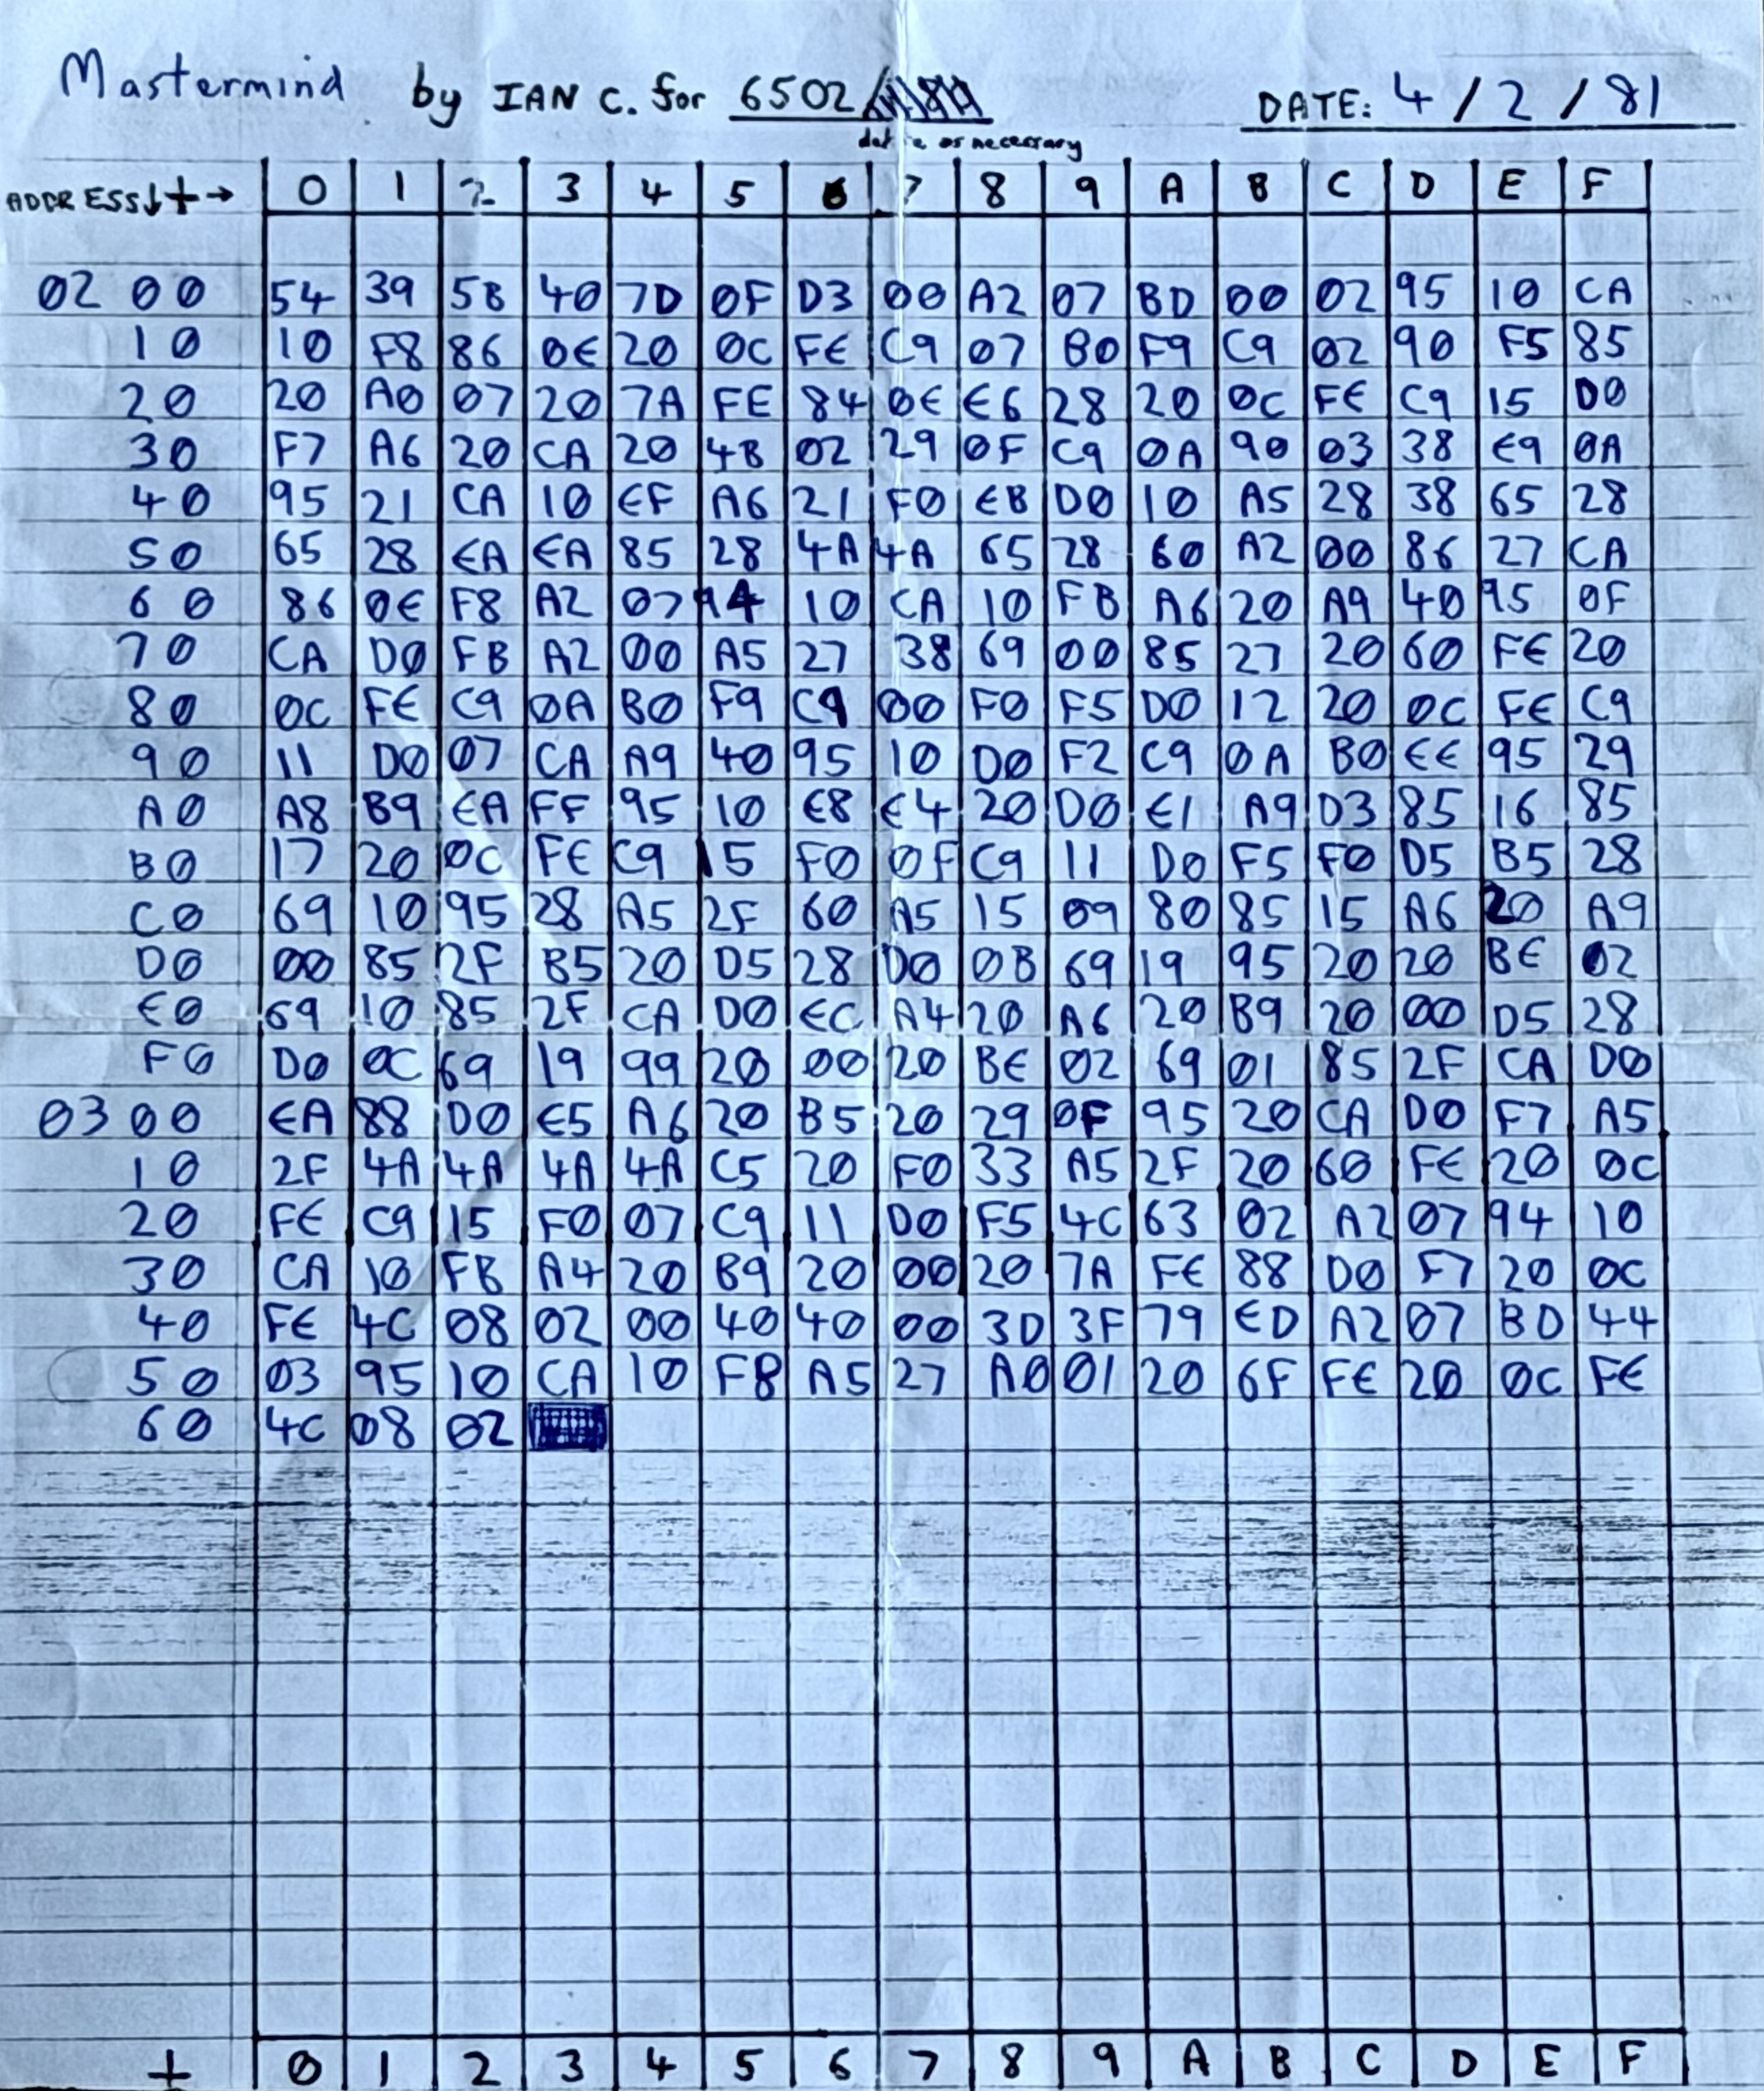 Mastermind by IAN C. for 6502 DATE: 4/2/81
delete as necessary
ADDRESS↓+→ 0 1 2 3 4 5 6 7 8 9 A B C D E F
02 00 54 39 5B 40 7D 0F D3 00 A2 07 BD 00 02 95 10 CA
10 10 F8 86 0E 20 0C FE C9 07 B0 F9 C9 02 90 F5 85
20 20 A0 07 20 7A FE 84 0E E6 28 20 0C FE C9 15 D0
30 F7 A6 20 CA 20 4B 02 29 0F C9 0A 90 03 38 E9 0A
40 95 21 CA 10 EF A6 21 F0 EB D0 10 A5 28 38 65 28
50 65 28 EA EA 85 28 4A 4A 65 28 60 A2 00 86 27 CA
60 86 0E F8 A2 07 94 10 CA 10 FB A6 20 A9 40 95 0F
70 CA D0 FB A2 00 A5 27 38 69 00 85 27 20 60 FE 20
80 0C FE C9 0A B0 F9 C9 00 F0 F5 D0 12 20 0C FE C9
90 11 D0 07 CA A9 40 95 10 D0 F2 C9 0A B0 EE 95 29
A0 A8 B9 EA FF 95 10 E8 E4 20 D0 E1 A9 D3 85 16 85
B0 17 20 0C FE C9 15 F0 0F C9 11 D0 F5 F0 D5 B5 28
C0 69 10 95 28 A5 2F 60 A5 15 09 80 85 15 A6 20 A9
D0 00 85 2F B5 20 D5 28 D0 0B 69 19 95 20 20 BE 02
E0 69 10 85 2F CA D0 EC A4 20 A6 20 B9 20 00 D5 28
F0 D0 0C 69 19 99 20 00 20 BE 02 69 01 85 2F CA D0
03 00 EA 88 D0 E5 A6 20 B5 20 29 0F 95 20 CA D0 F7 A5
10 2F 4A 4A 4A 4A C5 20 F0 33 A5 2F 20 60 FE 20 0C
20 FE C9 15 F0 07 C9 11 D0 F5 4C 63 02 A2 07 94 10
30 CA 10 FB A4 20 B9 20 00 20 7A FE 88 D0 F7 20 0C
40 FE 4C 08 02 00 40 40 00 3D 3F 79 ED A2 07 BD 44
50 03 95 10 CA 10 F8 A5 27 A0 01 20 6F FE 20 0C FE
60 4C 08 02
+ 0 1 2 3 4 5 6 7 8 9 A B C D E F